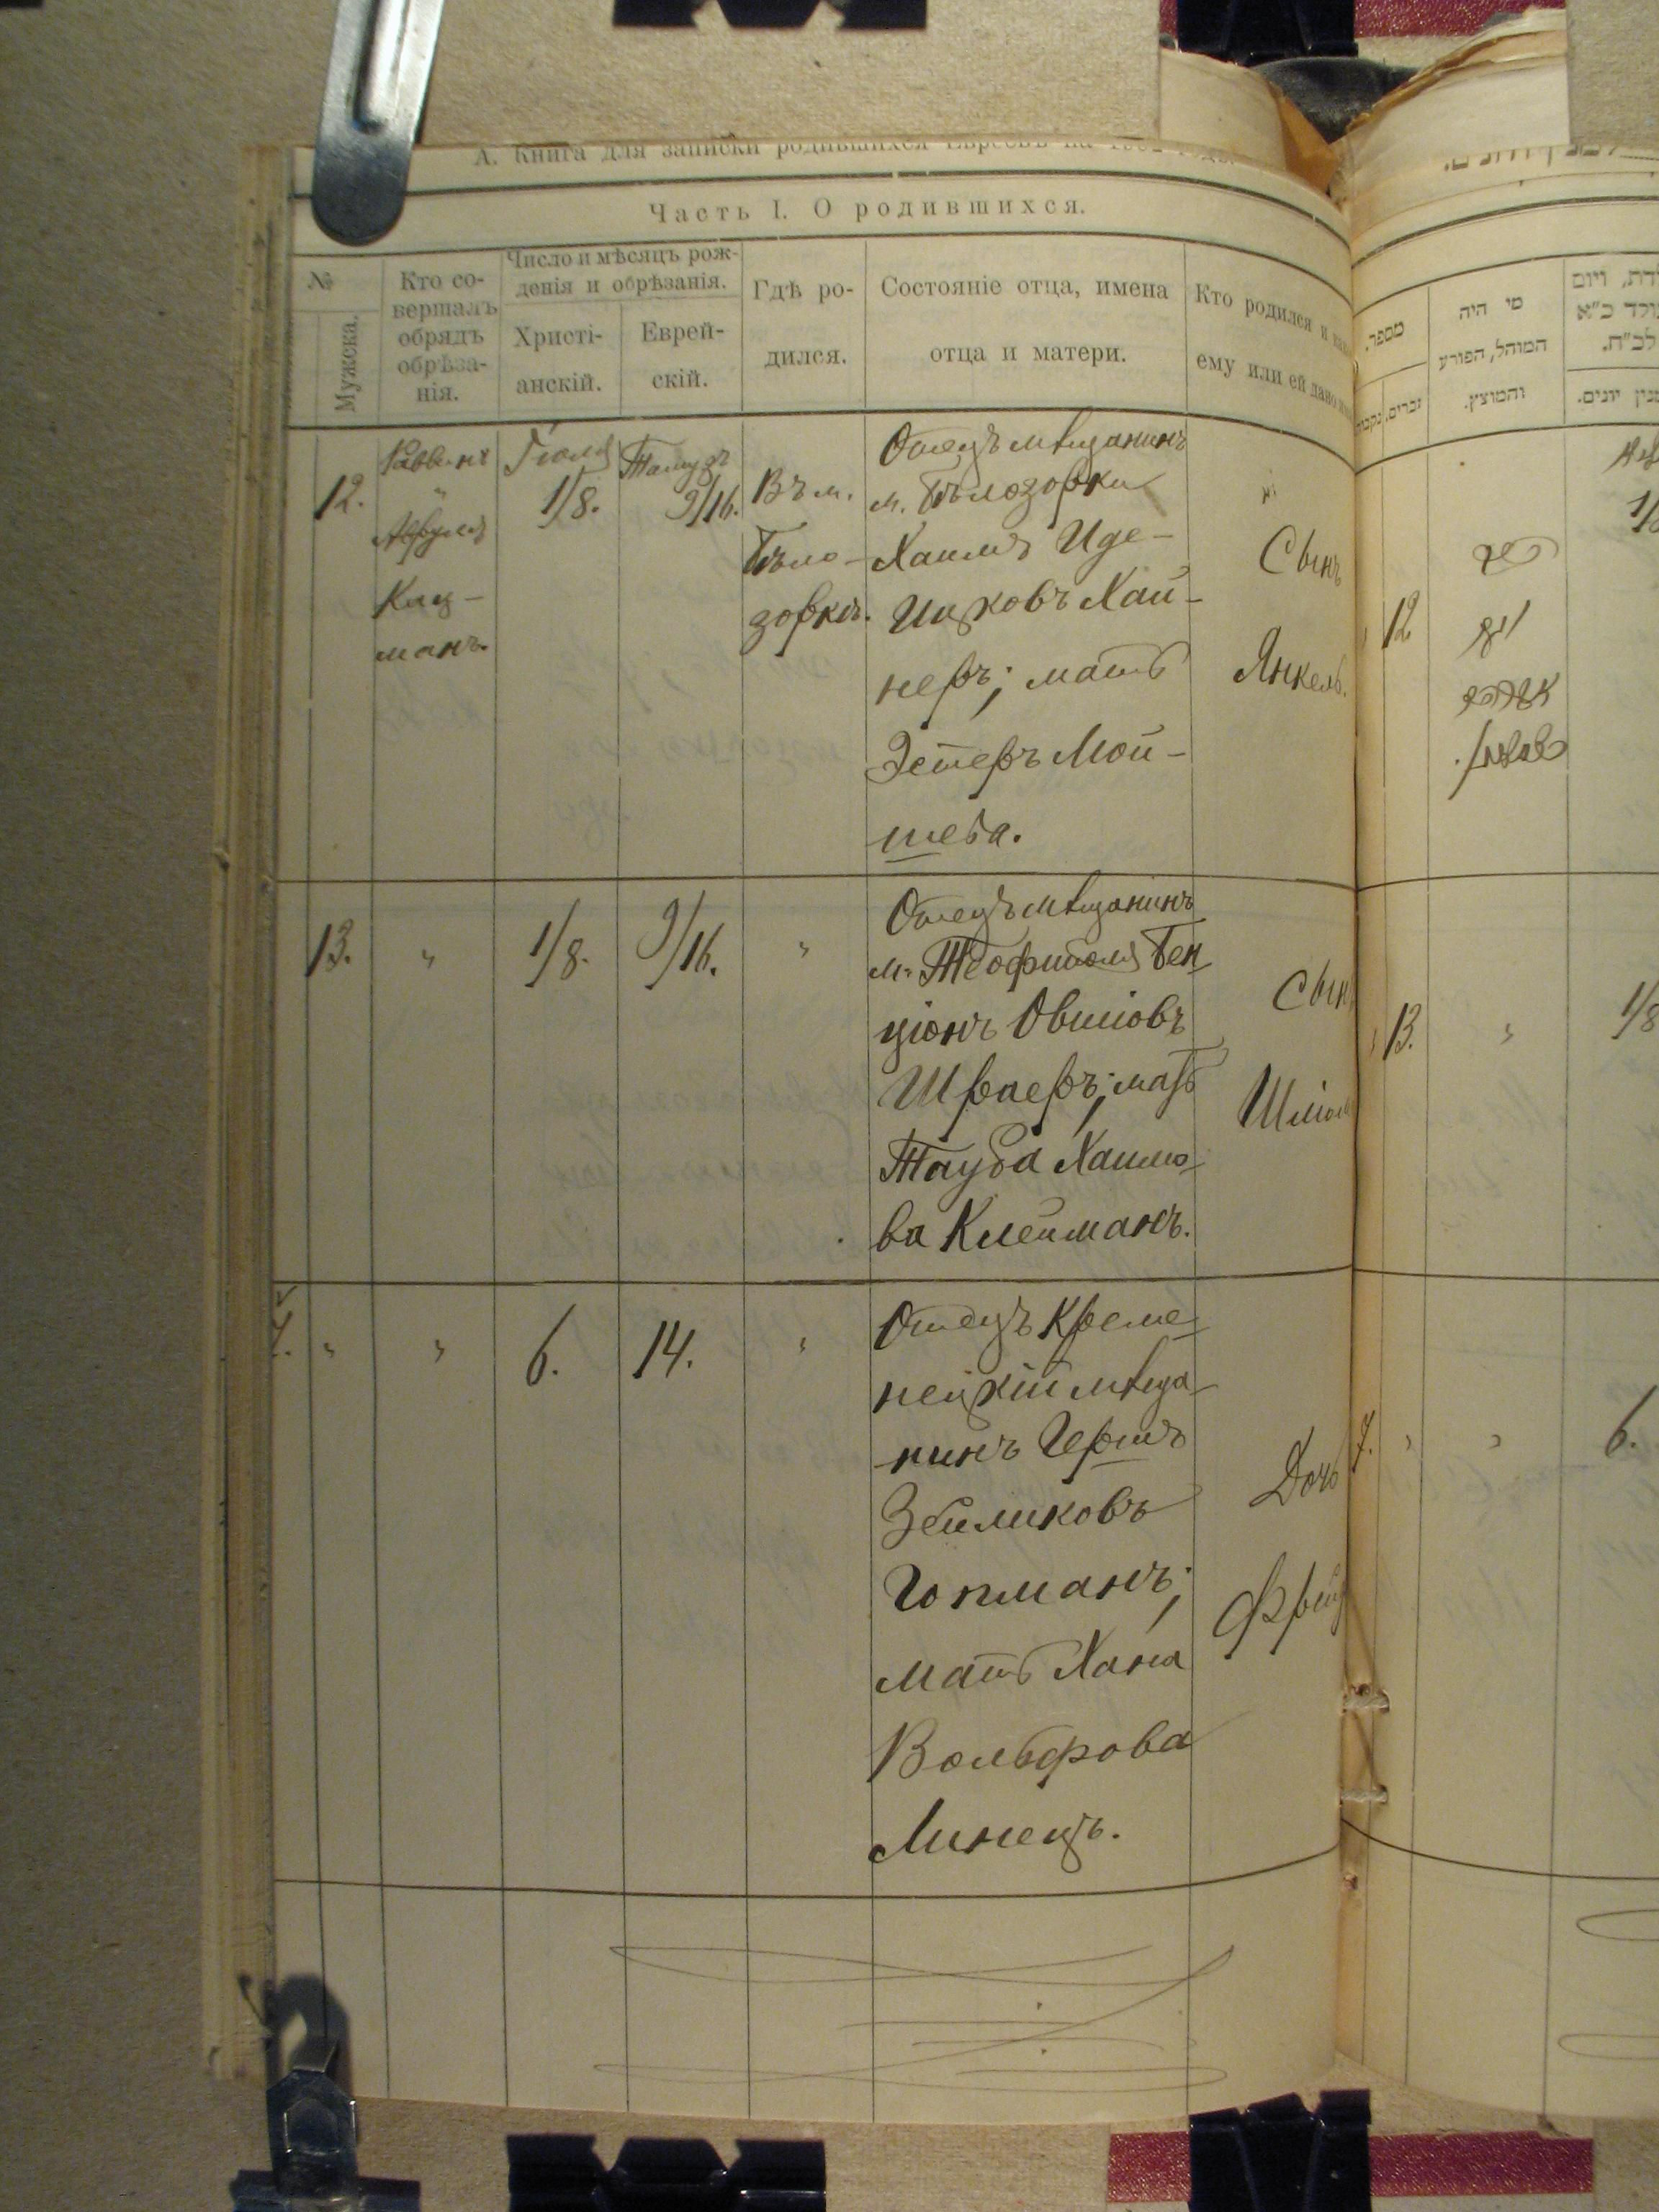 А. Книга для записки родившихся Евреевъ на
Часть I. О родившихся.
№
Мужска.
Кто со-
вершалъ
обрядъ
обрѣза-
нія.
Число и мѣсяцъ рож-
денія и обрѣзанія.
Христі-
анскій.
Еврей-
скій.
Гдѣ ро-
дился.
Состояніе отца, имена
отца и матери.
Кто родился и
ему или ей дано
12.
Раввинъ
"
Кац-
манъ.
Іюля
1/8.
Тамузъ
9/16.
Въ м.
Бѣло-
зоркѣ.
Отецъ мѣщанинъ
м. Бѣлозорки
Хаимъ Иде-
Ицковъ Хай-
неръ; мать
Эстеръ Мой-
шева.
Сынъ
Янкель.
13.
"
1/8.
9/16.
"
Отецъ мѣщанинъ
м. Теофиполя Бен
ціонъ Овшіовъ
Шраеръ; мать
Тауба Хаимо-
ва Клейманъ.
Сын
Шліом
"
"
6.
14.
"
Отецъ Креме-
нецкій мѣща-
нинъ Гершъ
Зейликовъ
Гопманъ;
мать Хана
Вольфова
Линецъ.
Дочь
מספר.
זכרים.
מי היה
המוהל, הפורע
והמוצץ.
12.
13.
"
1/8
7.
"
"
6.